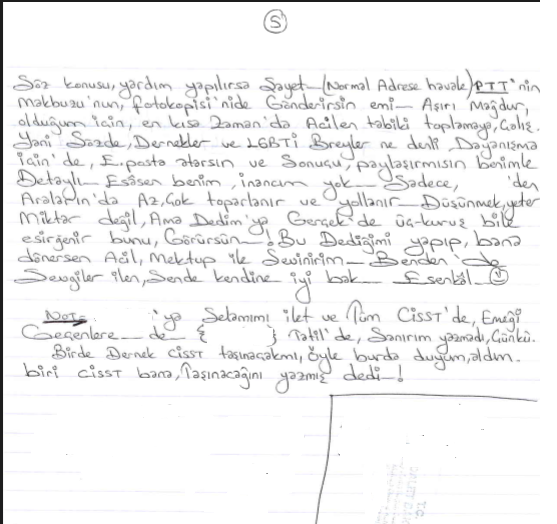 5
Söz konusu, yardım yapılırsa Şayet—(Normal Adrese havale) PTT'nin
makbuzu'nun, fotokopisi'nide Gönderirsin emi— Aşırı Mağdur,
olduğum için, en kısa Zaman'da Acilen tabiki toplamaya, Çalış.
Yani Sözde, Dernekler ve LGBTİ Breyler ne denli, Dayanışma
için'de, E.posta atarsın ve Sonucu, paylaşırmısın benimle
Detaylı— Esâsen benim, inancım yok— Sadece, 'den
Araların'da Az, Çok toparlanır ve yollanır— Düşünmek, yeter
Miktar değil, Ama Dedim'ya Gerçek'de üç-kuruş bile
esirgenir bunu, Görürsün—! Bu Dediğimi yapıp, bana
dönersen Acil, Mektup ile Sevinirim— Benden'de
Sevgiler ilen, Sende kendine iyi bak— Esenkâl—
NOT= 'ya Selamımı ilet ve Tüm CissT'de, Emeği
Geçenlere—de— { } Tatil'de, Sanırım yazmadı, Çünkü.
Birde Dernek CissT taşınacakmı, Öyle burda duyum, aldım.
biri CissT bana, Taşınacağını yazmış dedi—!